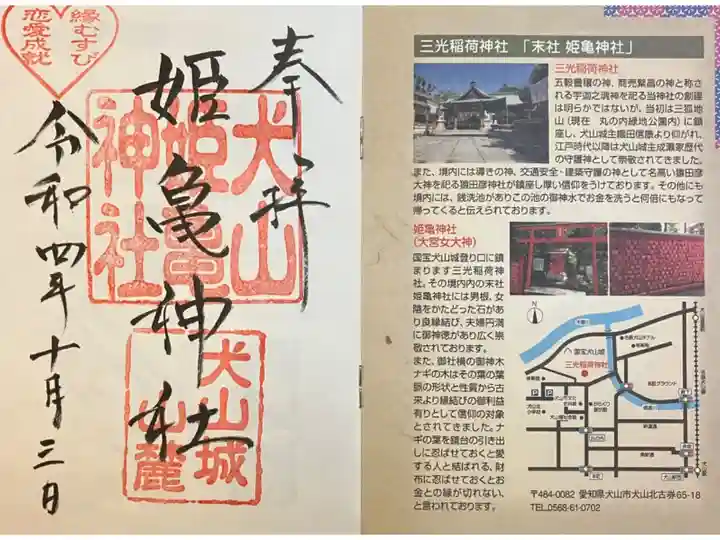 奉拝
縁むすび
恋愛成就
姫亀神社
犬山
姫亀
神社
犬山城
山麓
令和四年十月三日
三光稲荷神社 「末社 姫亀神社」
三光稲荷神社
五穀豊穣の神、商売繁昌の神と称さ
れる宇迦之瑛神を祀る当神社の創建
は明らかではないが、当初は三狐地
山（現在 丸の内緑地公園内）に鎮
座し、犬山城主織田信康より仰がれ、
江戸時代以降は犬山城主成瀬家歴代
の守護神として崇敬されてきました。
また、境内には導きの神、交通安全・建築守護の神として名高い猿田彦
大神を祀る猿田彦神社が鎮座し厚い信仰をうけております。その他にも
境内には、銭洗池がありこの池の御神水でお金を洗うと何倍にもなって
帰ってくると伝えられております。
姫亀神社
（大宮女大神）
国宝犬山城登り口に鎮
まります三光稲荷神
社。その境内内の末社
姫亀神社には男根、女
陰をかたどった石があ
り良縁結び、夫婦円満
に御神徳があり広く崇
敬されております。
また、御社横の御神木
ナギの木はその葉の葉
脈の形状と性質から古
来より縁結びの御利益
有りとして信仰の対象
とされてきました。ナ
ギの葉を鏡台の引き出
しに忍ばせておくと愛
する人と結ばれる、財
布に忍ばせておくとお
金との縁が切れない、
と言われております。
国宝犬山城
三光稲荷神社
〒484-0082 愛知県犬山市犬山北古券65-18
TEL.0568-61-0702